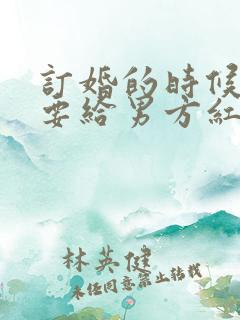 訂婚的時候
要給男方紅
林英健
未经同意禁止转载